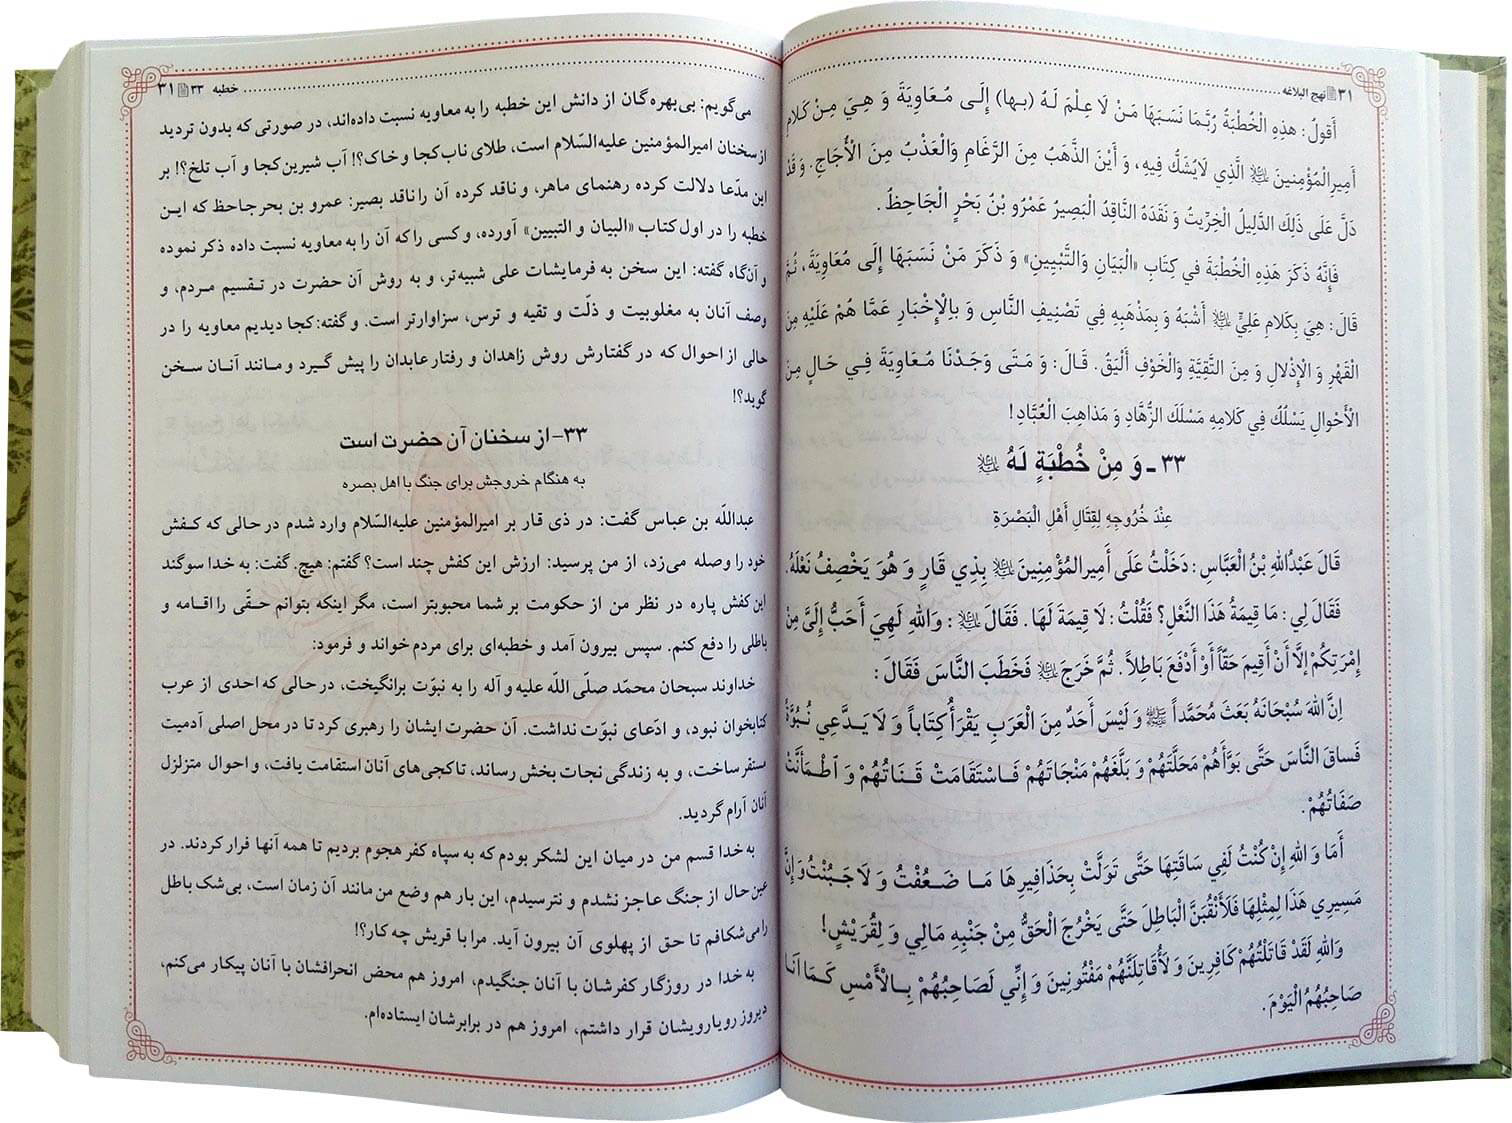 ۳۱ نهج البلاغه
أَقولُ: هذِهِ الْخُطْبَةُ رُبَّمَا نَسَبَهَا مَنْ لَا عِلْمَ لَهُ (بها) إِلَى مُعَاوِيَةَ وَ هِيَ مِنْ كَلامِ
أَمِيرِالْمُؤْمِنينَ الَّذِي لَايُشَكُّ فِيهِ، وَ أَيْنَ الذَّهَبُ مِنَ الرَّغَامِ وَالْعَذْبُ مِنَ الْأُجَاجِ. وَ قَدْ
دَلَّ عَلَى ذَلِكَ الدَّلِيلُ الْخِرِّيتُ وَ نَقَدَهُ النَّاقِدُ الْبَصِيرُ عَمْرُو بْنُ بَحْرٍ الْجَاحِظُ.
فَإِنَّهُ ذَكَرَ هَذِهِ الْخُطْبَةَ في كِتَابِ «الْبَيَانِ وَالتَّبْيِينِ» وَ ذَكَرَ مَنْ نَسَبَهَا إِلَى مُعَاوِيَةَ، ثُمَّ
قَالَ: هِيَ بِكَلامِ عَلِيٍّ أَشْبَهُ وَ بِمَذْهَبِهِ فِي تَصْنِيفِ النَّاسِ وَ بِالْإِخْبَارِ عَمَّا هُمْ عَلَيْهِ مِنَ
الْقَهْرِ وَ الْإِذْلالِ وَ مِنَ التَّقِيَّةِ وَالْخَوْفِ أَلْيَقُ. قَالَ: وَ مَتَى وَجَدْنَا مُعَاوِيَةَ فِي حَالٍ مِنَ
الْأَحْوالِ يَسْلُكُ فِي كَلامِهِ مَسْلَكَ الزُّهَّادِ وَ مَذاهِبَ الْعُبَّادِ!
۳۳ - وَ مِنْ خُطْبَةٍ لَهُ
عِنْدَ خُرُوجِهِ لِقِتَالِ أَهْلِ الْبَصْرَةِ
قَالَ عَبْدُاللهِ بْنُ الْعَبَّاسِ: دَخَلْتُ عَلَى أَمِيرِالمُؤْمِنِينَ بِذِي قَارٍ وَ هُوَ يَخْصِفُ نَعْلَهُ.
فَقَالَ لِي: مَا قِيمَةُ هَذَا النَّعْلِ؟ فَقُلْتُ: لَا قِيمَةَ لَهَا. فَقَالَ: وَاللهِ لَهِيَ أَحَبُّ إِلَيَّ مِنْ
إِمْرَتِكُمْ إِلَّا أَنْ أُقِيمَ حَقّاً أَوْ أَدْفَعَ بَاطِلاً. ثُمَّ خَرَجَ فَخَطَبَ النَّاسَ فَقَالَ:
اِنَّ اللهَ سُبْحَانَهُ بَعَثَ مُحَمَّداً وَ لَيْسَ أَحَدٌ مِنَ الْعَرَبِ يَقْرَأُ كِتَاباً وَ لَا يَدَّعِي نُبُوَّةً
فَساقَ النَّاسَ حَتَّى بَوَّأَهُمْ مَحَلَّتَهُمْ وَ بَلَّغَهُمْ مَنْجَاتَهُمْ فَاسْتَقَامَتْ قَنَاتُهُمْ وَ اطْمَأَنَّتْ
صَفَاتُهُمْ.
أَمَا وَ اللهِ إِنْ كُنْتُ لَفِي سَاقَتِهَا حَتَّى تَوَلَّتْ بِحَذَافِيرِهَا مَا ضَعُفْتُ وَ لَا جَبُنْتُ وَ إِنَّ
مَسِيرِي هَذَا لِمِثْلِهَا فَلَأَنْقُبَنَّ الْبَاطِلَ حَتَّى يَخْرُجَ الْحَقُّ مِنْ جَنْبِهِ مَالِي وَ لِقُرَيْشٍ!
وَاللهِ لَقَدْ قَاتَلْتُهُمْ كَافِرِينَ وَ لَأُقَاتِلَنَّهُمْ مَفْتُونِينَ وَ إِنِّي لَصَاحِبُهُمْ بِالْأَمْسِ كَمَا أَنَا
صَاحِبُهُمُ الْيَوْمَ.
خطبه ۳۳ ۳۱
می‌گویم: بی‌بهره‌گان از دانش این خطبه را به معاویه نسبت داده‌اند، در صورتی که بدون تردید
از سخنان امیرالمؤمنین علیه‌السّلام است، طلای ناب کجا و خاک؟! آب شیرین کجا و آب تلخ؟! بر
این مدّعا دلالت کرده رهنمای ماهر، و ناقد کرده آن را ناقد بصیر: عمرو بن بحر جاحظ که این
خطبه را در اول کتاب «البیان و التبیین» آورده، و کسی را که آن را به معاویه نسبت داده ذکر نموده
و آن‌گاه گفته: این سخن به فرمایشات علی شبیه‌تر، و به روش آن حضرت در تقسیم مردم، و
وصف آنان به مغلوبیت و ذلّت و تقیه و ترس، سزاوارتر است. و گفته: کجا دیدیم معاویه را در
حالی از احوال که در گفتارش روش زاهدان و رفتار عابدان را پیش گیرد و مانند آنان سخن
گوید؟!
۳۳- از سخنان آن حضرت است
به هنگام خروجش برای جنگ با اهل بصره
عبداللّه بن عباس گفت: در ذی قار بر امیرالمؤمنین علیه‌السّلام وارد شدم در حالی که کفش
خود را وصله می‌زد، از من پرسید: ارزش این کفش چند است؟ گفتم: هیچ. گفت: به خدا سوگند
این کفش پاره در نظر من از حکومت بر شما محبوبتر است، مگر اینکه بتوانم حقّی را اقامه و
باطلی را دفع کنم. سپس بیرون آمد و خطبه‌ای برای مردم خواند و فرمود:
خداوند سبحان محمّد صلّی اللّه علیه و آله را به نبوّت برانگیخت، در حالی که احدی از عرب
کتابخوان نبود، و ادّعای نبوّت نداشت. آن حضرت ایشان را رهبری کرد تا در محل اصلی آدمیت
مستقر ساخت، و به زندگی نجات بخش رساند، تا کجی‌های آنان استقامت یافت، و احوال متزلزل
آنان آرام گردید.
به خدا قسم من در میان این لشکر بودم که به سپاه کفر هجوم بردیم تا همه آنها فرار کردند. در
عین حال از جنگ عاجز نشدم و نترسیدم، این بار هم وضع من مانند آن زمان است، بی‌شک باطل
را می‌شکافم تا حق از پهلوی آن بیرون آید. مرا با قریش چه کار؟!
به خدا در روزگار کفرشان با آنان جنگیدم، امروز هم محض انحرافشان با آنان پیکار می‌کنم،
دیروز رویارویشان قرار داشتم، امروز هم در برابرشان ایستاده‌ام.